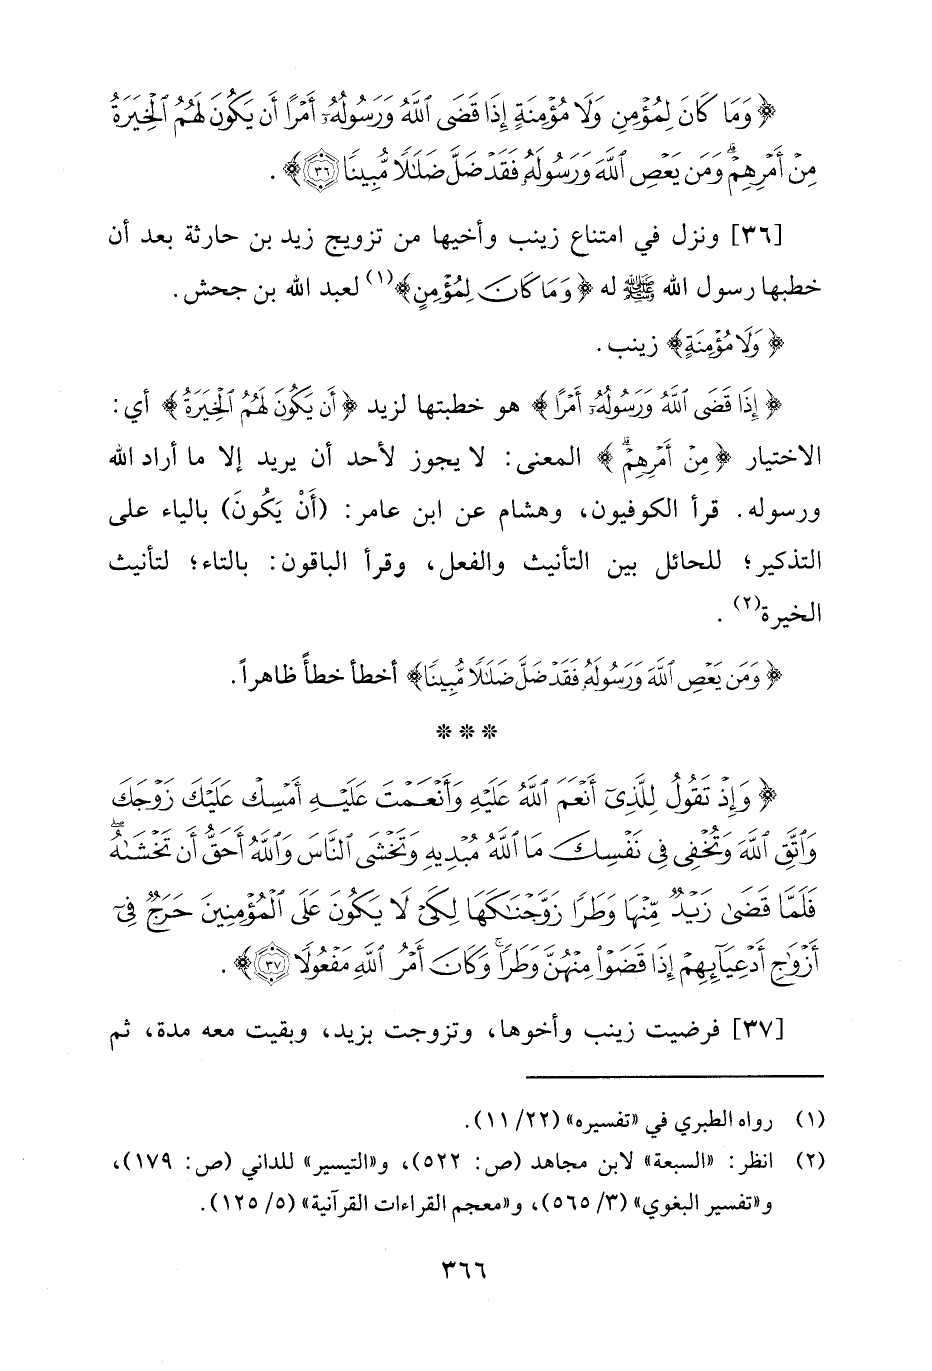 ﴿ وَمَا كَانَ لِمُؤْمِنٍ وَلَا مُؤْمِنَةٍ إِذَا قَضَى ٱللَّهُ وَرَسُولُهُۥٓ أَمْرًا أَن يَكُونَ لَهُمُ ٱلْخِيَرَةُ
مِنْ أَمْرِهِمْ ۗ وَمَن يَعْصِ ٱللَّهَ وَرَسُولَهُۥ فَقَدْ ضَلَّ ضَلَٰلًا مُّبِينًا ٣٦ ﴾ .
[٣٦] ونزل في امتناع زينب وأخيها من تزويج زيد بن حارثة بعد أن
خطبها رسول الله ﷺ له ﴿ وَمَا كَانَ لِمُؤْمِنٍ﴾(١) لعبد الله بن جحش.
﴿ وَلَا مُؤْمِنَةٍ﴾ زينب.
﴿ إِذَا قَضَى ٱللَّهُ وَرَسُولُهُۥٓ أَمْرًا ﴾ هو خطبتها لزيد ﴿ أَن يَكُونَ لَهُمُ ٱلْخِيَرَةُ ﴾ أي:
الاختيار ﴿ مِنْ أَمْرِهِمْ ۗ ﴾ المعنى: لا يجوز لأحد أن يريد إلا ما أراد الله
ورسوله. قرأ الكوفيون، وهشام عن ابن عامر: (أَنْ يَكُونَ) بالياء على
التذكير؛ للحائل بين التأنيث والفعل، وقرأ الباقون: بالتاء؛ لتأنيث
الخيرة(٢) .
﴿ وَمَن يَعْصِ ٱللَّهَ وَرَسُولَهُۥ فَقَدْ ضَلَّ ضَلَٰلًا مُّبِينًا﴾ أخطأ خطأً ظاهراً.
* * *
﴿ وَإِذْ تَقُولُ لِلَّذِىٓ أَنْعَمَ ٱللَّهُ عَلَيْهِ وَأَنْعَمْتَ عَلَيْهِ أَمْسِكْ عَلَيْكَ زَوْجَكَ
وَٱتَّقِ ٱللَّهَ وَتُخْفِى فِى نَفْسِكَ مَا ٱللَّهُ مُبْدِيهِ وَتَخْشَى ٱلنَّاسَ وَٱللَّهُ أَحَقُّ أَن تَخْشَىٰهُ ۖ
فَلَمَّا قَضَىٰ زَيْدٌ مِّنْهَا وَطَرًا زَوَّجْنَٰكَهَا لِكَىْ لَا يَكُونَ عَلَى ٱلْمُؤْمِنِينَ حَرَجٌ فِىٓ
أَزْوَٰجِ أَدْعِيَآئِهِمْ إِذَا قَضَوْا۟ مِنْهُنَّ وَطَرًا ۚ وَكَانَ أَمْرُ ٱللَّهِ مَفْعُولًا ٣٧ ﴾ .
[٣٧] فرضيت زينب وأخوها، وتزوجت بزيد، وبقيت معه مدة، ثم
(١) رواه الطبري في «تفسيره» (٢٢/ ١١).
(٢) انظر: «السبعة» لابن مجاهد (ص: ٥٢٢)، و«التيسير» للداني (ص: ١٧٩)،
و«تفسير البغوي» (٣/ ٥٦٥)، و«معجم القراءات القرآنية» (٥/ ١٢٥).
٣٦٦